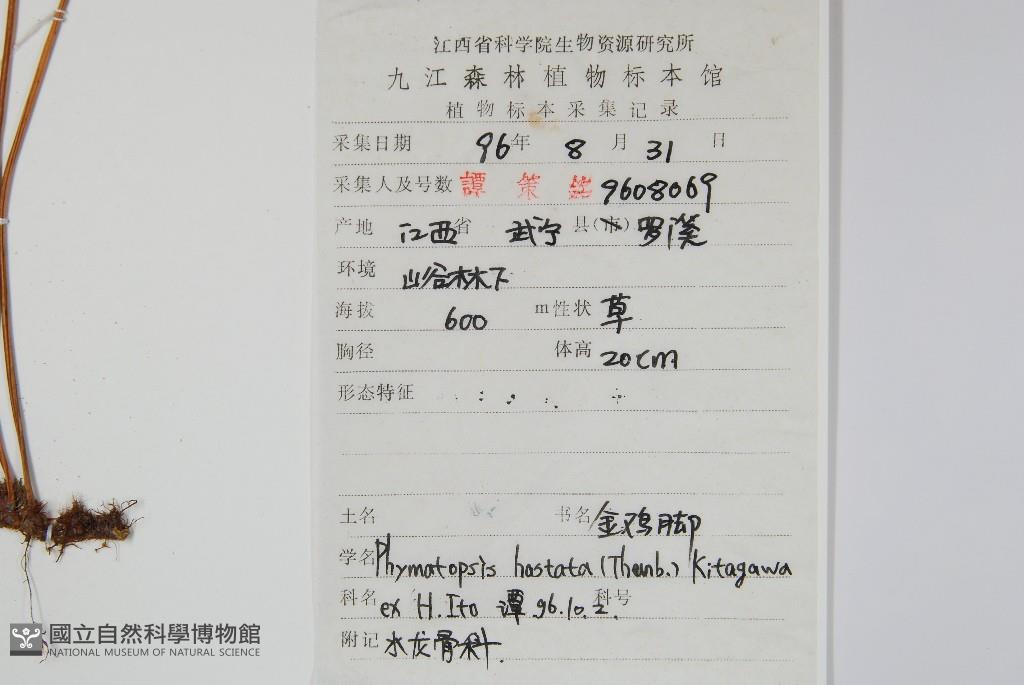 江西省科学院生物资源研究所
九江森林植物标本馆
植物标本采集记录
采集日期 96年 8 月 31 日
采集人及号数 譚策 9608069
产地 江西省 武宁 县(市) 罗溪
环境 山谷林下
海拔 600 m 性状 草
胸径 体高 20cm
形态特征
土名 书名 金鸡脚
学名 Phymatopsis hastata (Thunb.) Kitagawa
科名 ex H. Ito 谭 96.10.2. 科号
附记 水龙骨科.
國立自然科學博物館
NATIONAL MUSEUM OF NATURAL SCIENCE